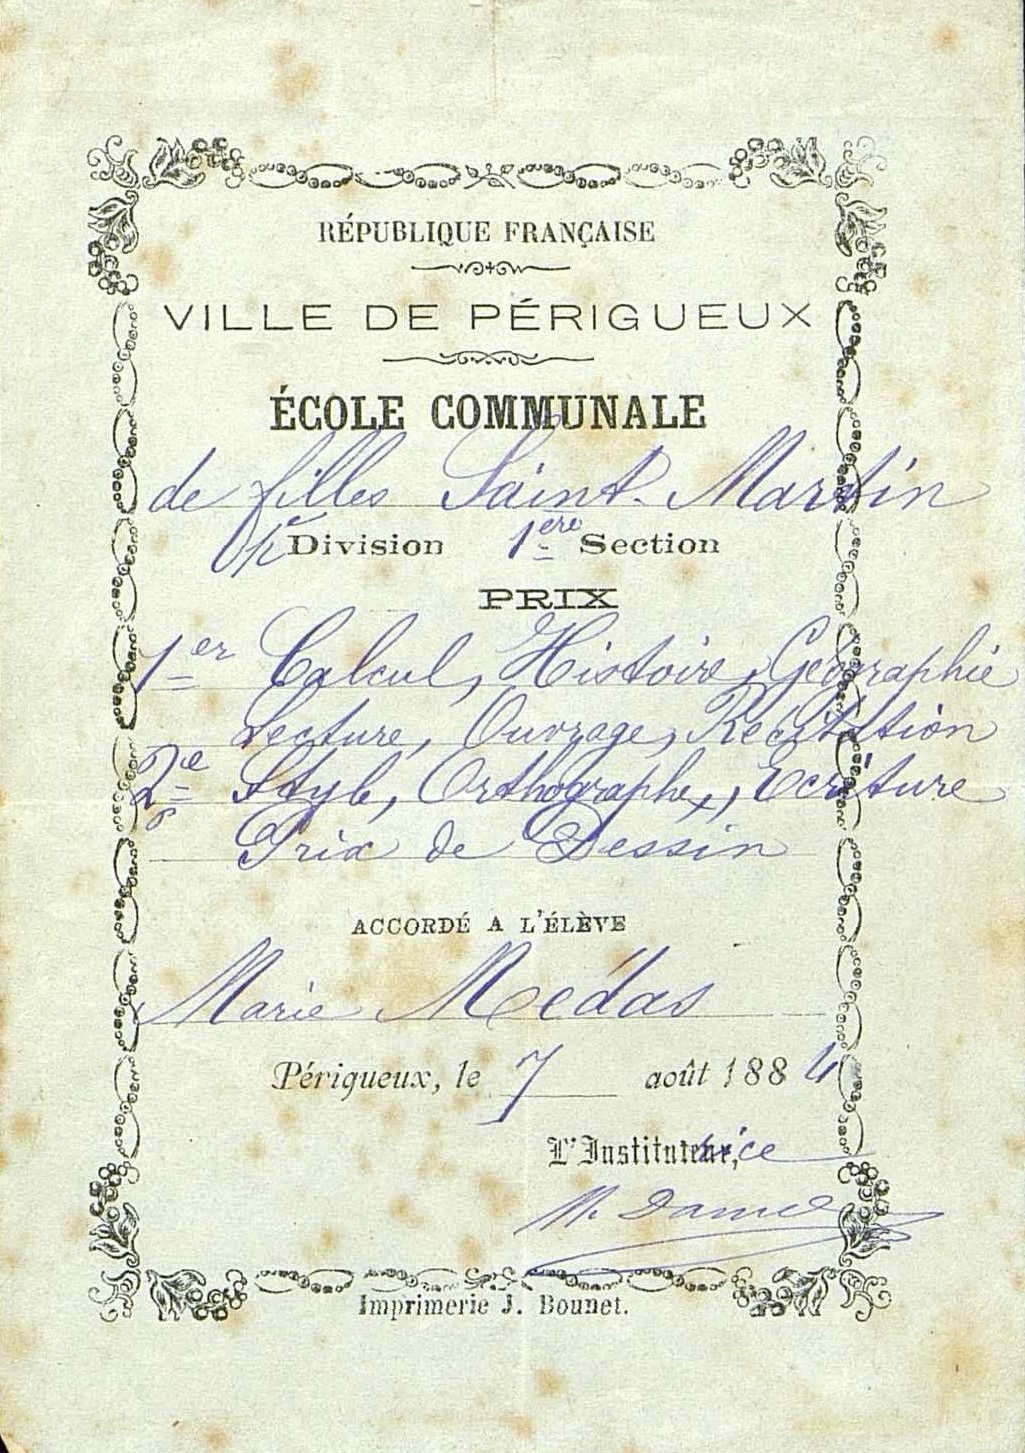 RÉPUBLIQUE FRANÇAISE
VILLE DE PÉRIGUEUX
ÉCOLE COMMUNALE
de filles Saint-Martin
Division 1ère Section
PRIX
1er Calcul, Histoire, Géographie
Lecture, Ouvrage, Récitation
2e Style, Orthographe, Ecriture
Prix de Dessin
ACCORDÉ A L'ÉLÈVE
Marie Médas
Périgueux, le 7 août 1884
L'Institutrice
Imprimerie J. Bounet.